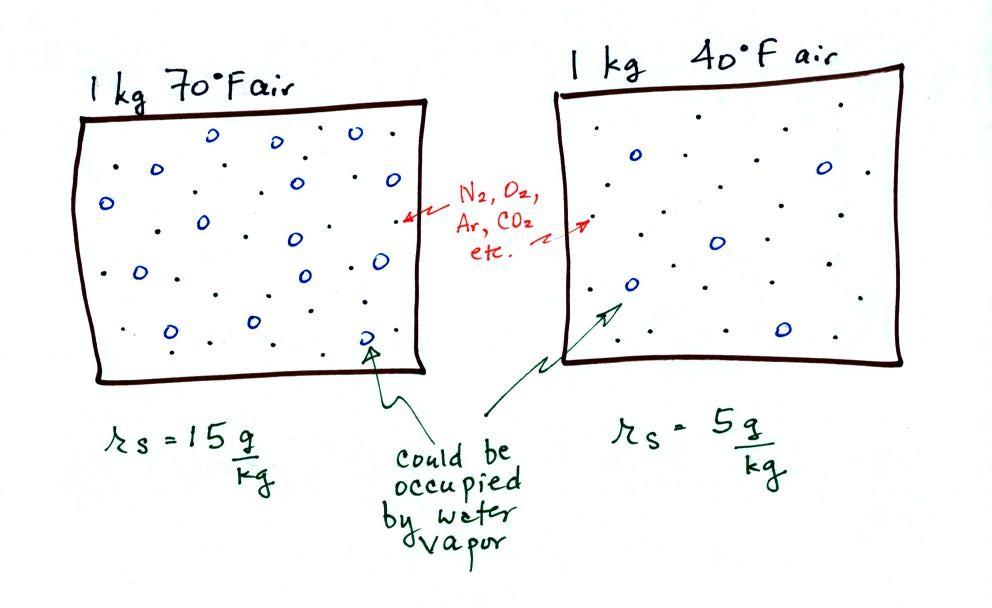 1 kg 70°F air
1 kg 40°F air
N2, O2,
Ar, CO2
etc.
rs = 15 g/kg
rs = 5 g/kg
could be
occupied
by water
vapor